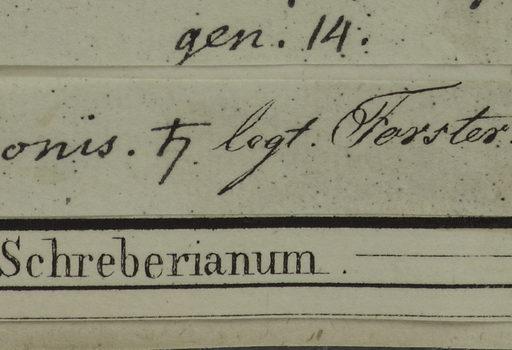 gen. 14.
onis. ♄ legt. Forster.
Schreberianum